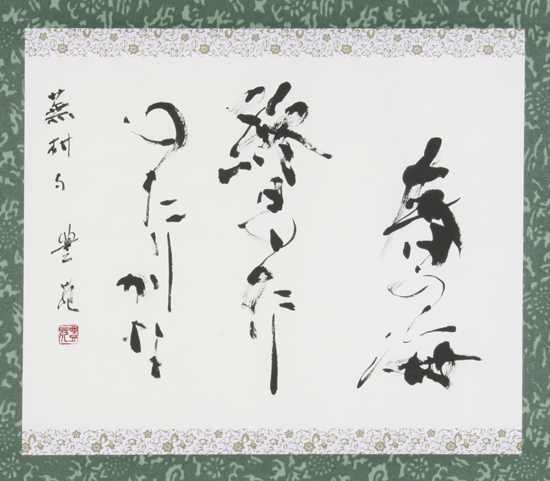 春の海
終日のたり
のたりかな
蕪村句 豊苑